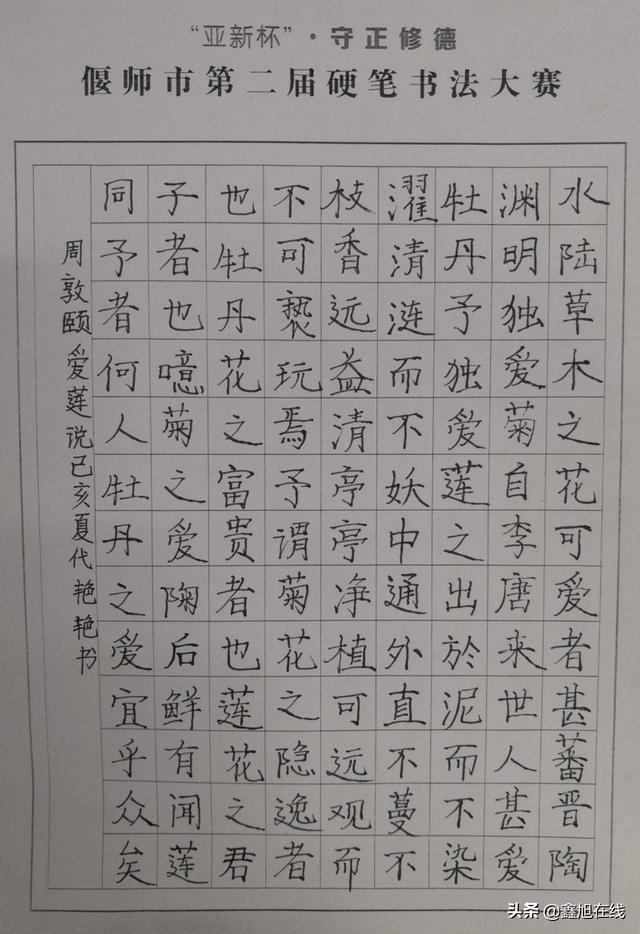 “亚新杯”·守正修德
偃师市第二届硬笔书法大赛
水陆草木之花可爱者甚蕃晋陶
渊明独爱菊自李唐来世人甚爱
牡丹予独爱莲之出於泥而不染
濯清涟而不妖中通外直不蔓不
枝香远益清亭亭净植可远观而
不可亵玩焉予谓菊花之隐逸者
也牡丹花之富贵者也莲花之君
子者也噫菊之爱陶后鲜有闻莲
同予者何人牡丹之爱宜乎众矣
周敦颐爱莲说己亥夏代艳艳书
头条 @鑫旭在线